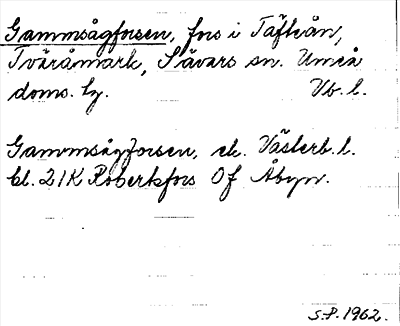 Gammsågforsen, fors i Täfteån,
Tväråmark, Sävars sn. Umeå
doms. hg. Vb. l.
Gammsågforsen, ek. Västerb. l.
bl. 21K Robertsfors 0f Åbyn.
S.P. 1962.